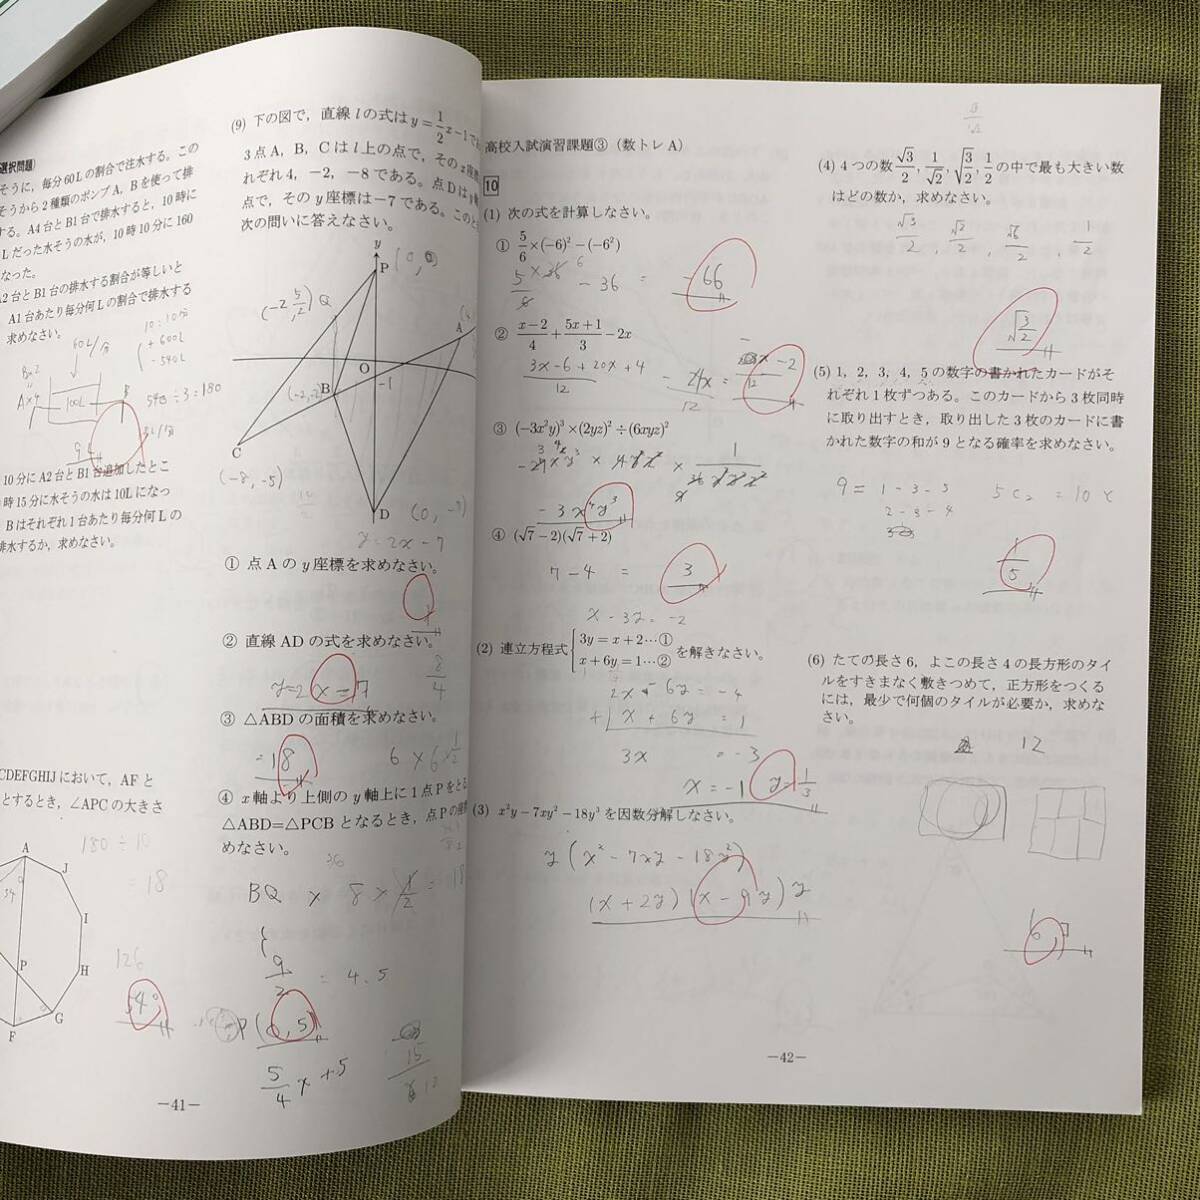 選択問題)
そうに，毎分60Lの割合で注水する。この
そうから2種類のポンプA，Bを使って排
する。A4台とB1台で排水すると，10時に
Lだった水そうの水が，10時10分に160
なった。
A2台とB1台の排水する割合が等しいと
A1台あたり毎分何Lの割合で排水する
求めなさい。
10:10分
+600L
-540L
60L/分
B×2
A×4
100L
540÷3=180
9L
10分にA2台とB1台追加したとこ
時15分に水そうの水は10Lになっ
Bはそれぞれ1台あたり毎分何Lの
排水するか，求めなさい。
CDEFGHIJにおいて，AFと
とするとき，∠APCの大きさ
180÷10
=18
A
J
I
H
P
G
F
126
54°
-41-
(9) 下の図で，直線lの式はy=1/2x-1で
3点A，B，Cはl上の点で，そのx座
れぞれ4，-2，-8である。点Dはy
点で，そのy座標は-7である。このと
次の問いに答えなさい。
y
P
(-2, 5/2)Q
A
O
-1
(-2,-2)
B
C
(-8,-5)
D
(0,-7)
y=2x-7
① 点Aのy座標を求めなさい。
1
② 直線ADの式を求めなさい。
8/4
y=2x-7
③ △ABDの面積を求めなさい。
=18
6×6×1/2
④ x軸より上側のy軸上に1点Pをとる
△ABD=△PCBとなるとき，点Pの座
めなさい。
36
BQ × 8 × 1/2 = 18
9/2 = 4.5
P(0,5)
5/4x+5
高校入試演習課題③（数トレA）
10
(1) 次の式を計算しなさい。
① 5/6×(-6)²-(-6²)
5/6×36 6 -36 = -66
② x-2/4+5x+1/3-2x
3x-6+20x+4/12 - 24x/12 = -x-2/12
③ (-3x²y)³×(2yz)²÷(6xyz)²
-3x⁴y³
④ (√7-2)(√7+2)
7-4 = 3
x-3y=-2
(2) 連立方程式{3y=x+2…① x+6y=1…②を解きなさい。
2x-6y=-4
+) x+6y=1
3x =-3
x=-1 y=1/3
(3) x²y-7xy²-18y³を因数分解しなさい。
y(x²-7xy-18y²)
(x+2y)(x-9y)y
(4) 4つの数√3/2, 1/√2, √3/2, 1/2の中で最も大きい数
はどの数か，求めなさい。
√3/2, √2/2, √6/2, 1/2
√3/2
(5) 1，2，3，4，5の数字の書かれたカードがそ
れぞれ1枚ずつある。このカードから3枚同時
に取り出すとき，取り出した3枚のカードに書
かれた数字の和が9となる確率を求めなさい。
9= 1-3-5
2-3-4
5C2 =10
1/5
(6) たての長さ6，よこの長さ4の長方形のタイ
ルをすきまなく敷きつめて，正方形をつくる
には，最少で何個のタイルが必要か，求めな
さい。
12
6コ
-42-